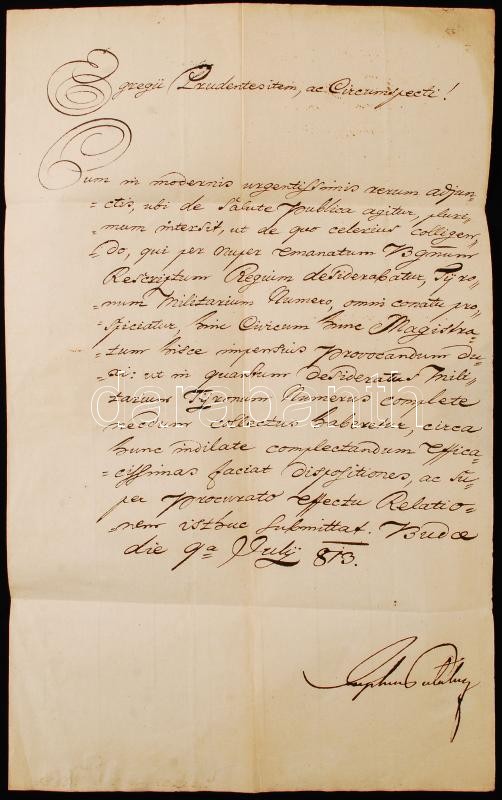 Egregii Prudentes item, ac Circumspecti!
Cum in modernis urgentissimis rerum adjun=
=ctis, ubi de Salute Publica agitur, pluri=
mum intersit, ut de quo celerius colligen=
do, qui per nuper emanatum Bgnum
Rescriptum Regium desiderabatur, Tyro=
=num Militarium Numero, omni conatu pro=
=spiciatur, hinc Civicum hunc Magistra=
=tum hisce impensius provocandum du=
xi: ut in quantum desideratus Mili=
tarium Tyronum Numerus complete
necdum collectus haberetur, circa
hunc indilate complectandum effica=
=cissimas faciat dispositiones, ac Su=
per procurato effectu Relatio=
nem isthuc submittat. Budae
die 9a Julÿ 813.
Josephus Palatinus
darabanth